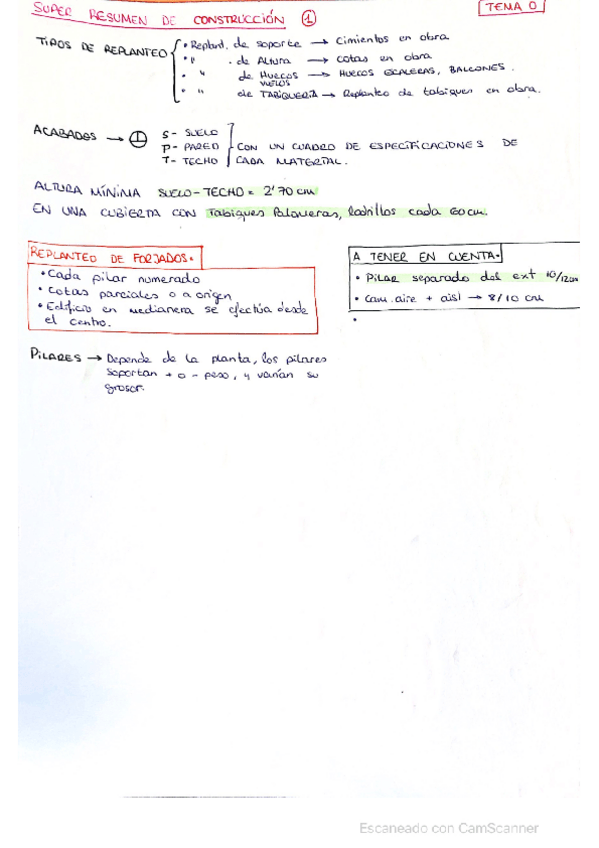 SUPER RESUMEN DE CONSTRUCCIÓN 1
TEMA 0
TIPOS DE REPLANTEO
• Replant. de soporte → Cimientos en obra
• " . de Altura → cotas en obra
• " de Huecos → HUECOS ESCALERAS, BALCONES.
VUELOS
• " de TABIQUERIA → Replanteo de tabiques en obra.
ACABADOS →
S - SUELO
P - PARED
T - TECHO
CON UN CUADRO DE ESPECIFICACIONES DE
CADA MATERIAL.
ALTURA MÍNIMA SUELO-TECHO = 2'70 cm
EN UNA CUBIERTA CON Tabiques Palomeros, ladrillos cada 60cm.
REPLANTEO DE FORJADOS.
• Cada pilar numerado
• Cotas parciales o a origen
• Edificio en medianera se efectúa desde
el centro.
A TENER EN CUENTA.
• PILAR separado del ext 10/12cm
• Cam. aire + aisl → 8/10 cm
•
PILARES → Depende de la planta, los pilares
soportan + o - peso, y varían su
grosor.
Escaneado con CamScanner